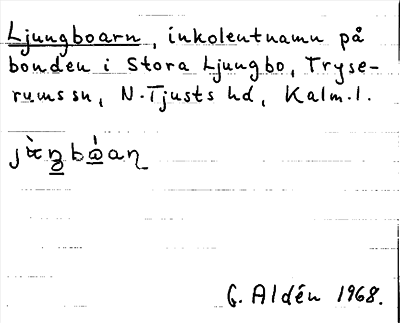 Ljungboarn, inkolentnamn på
bonden i Stora Ljungbo, Tryse-
rums sn, N. Tjusts hd, Kalm. l.
G. Aldén 1968.